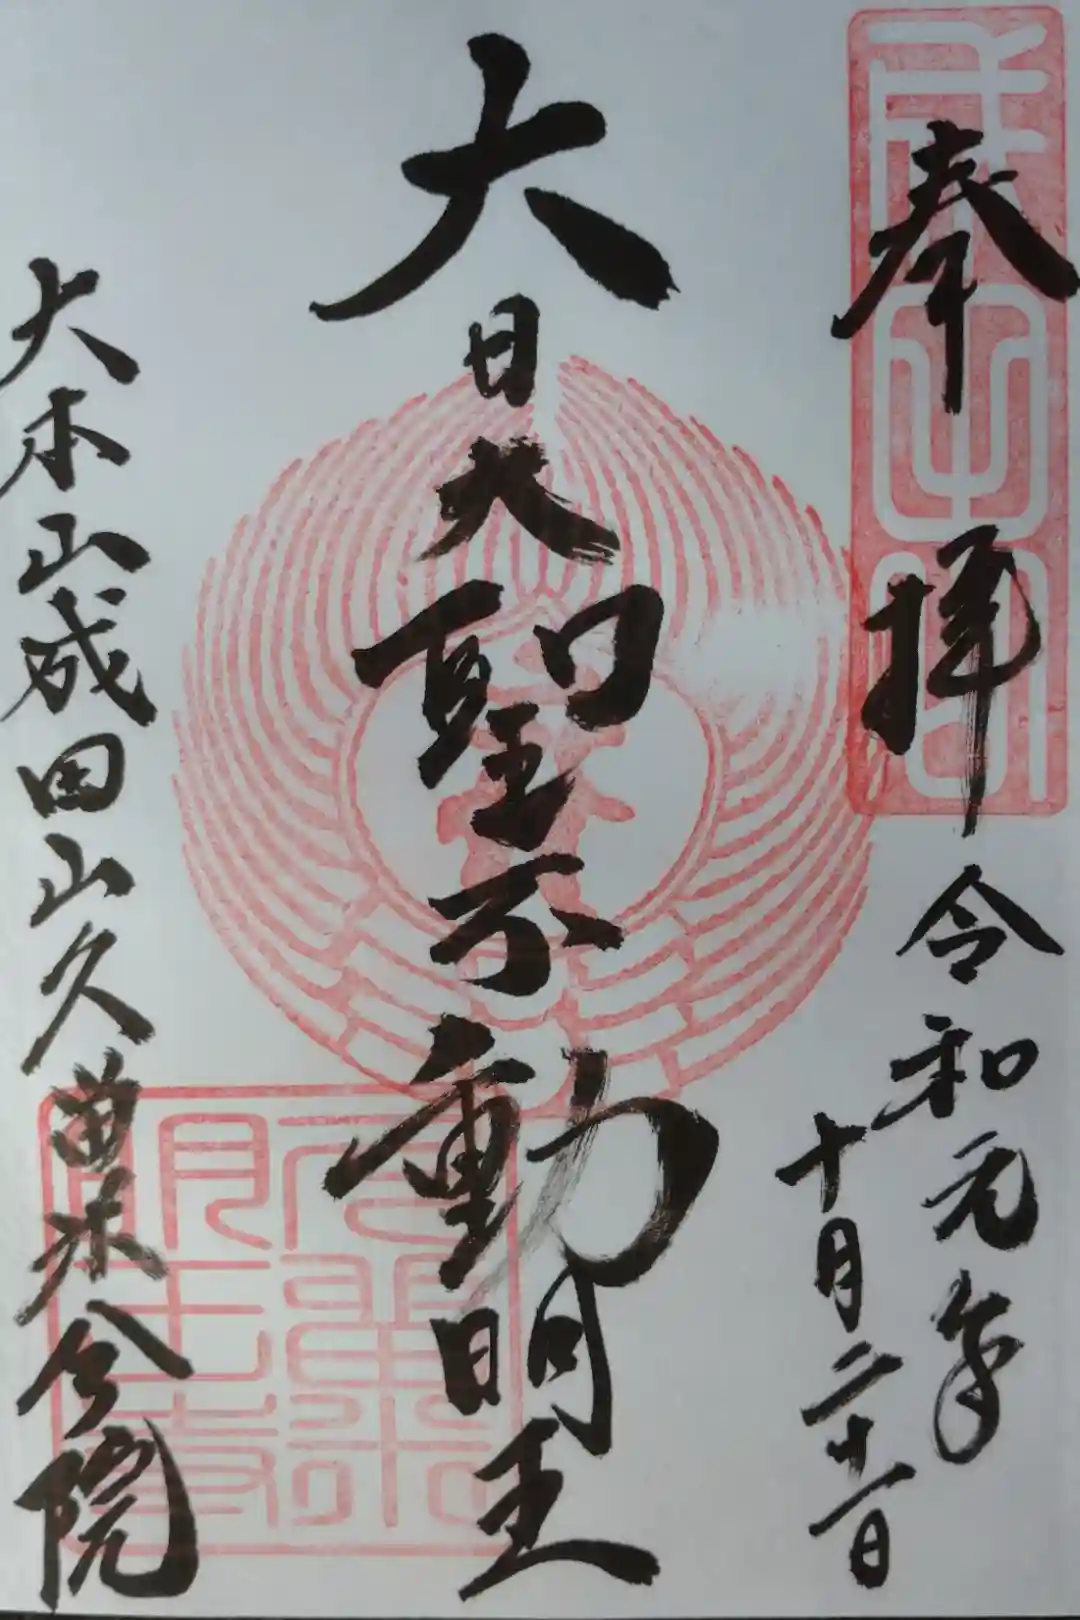 奉拝 令和元年
十月二十一日
大日大聖不動明王
大本山成田山久留米分院